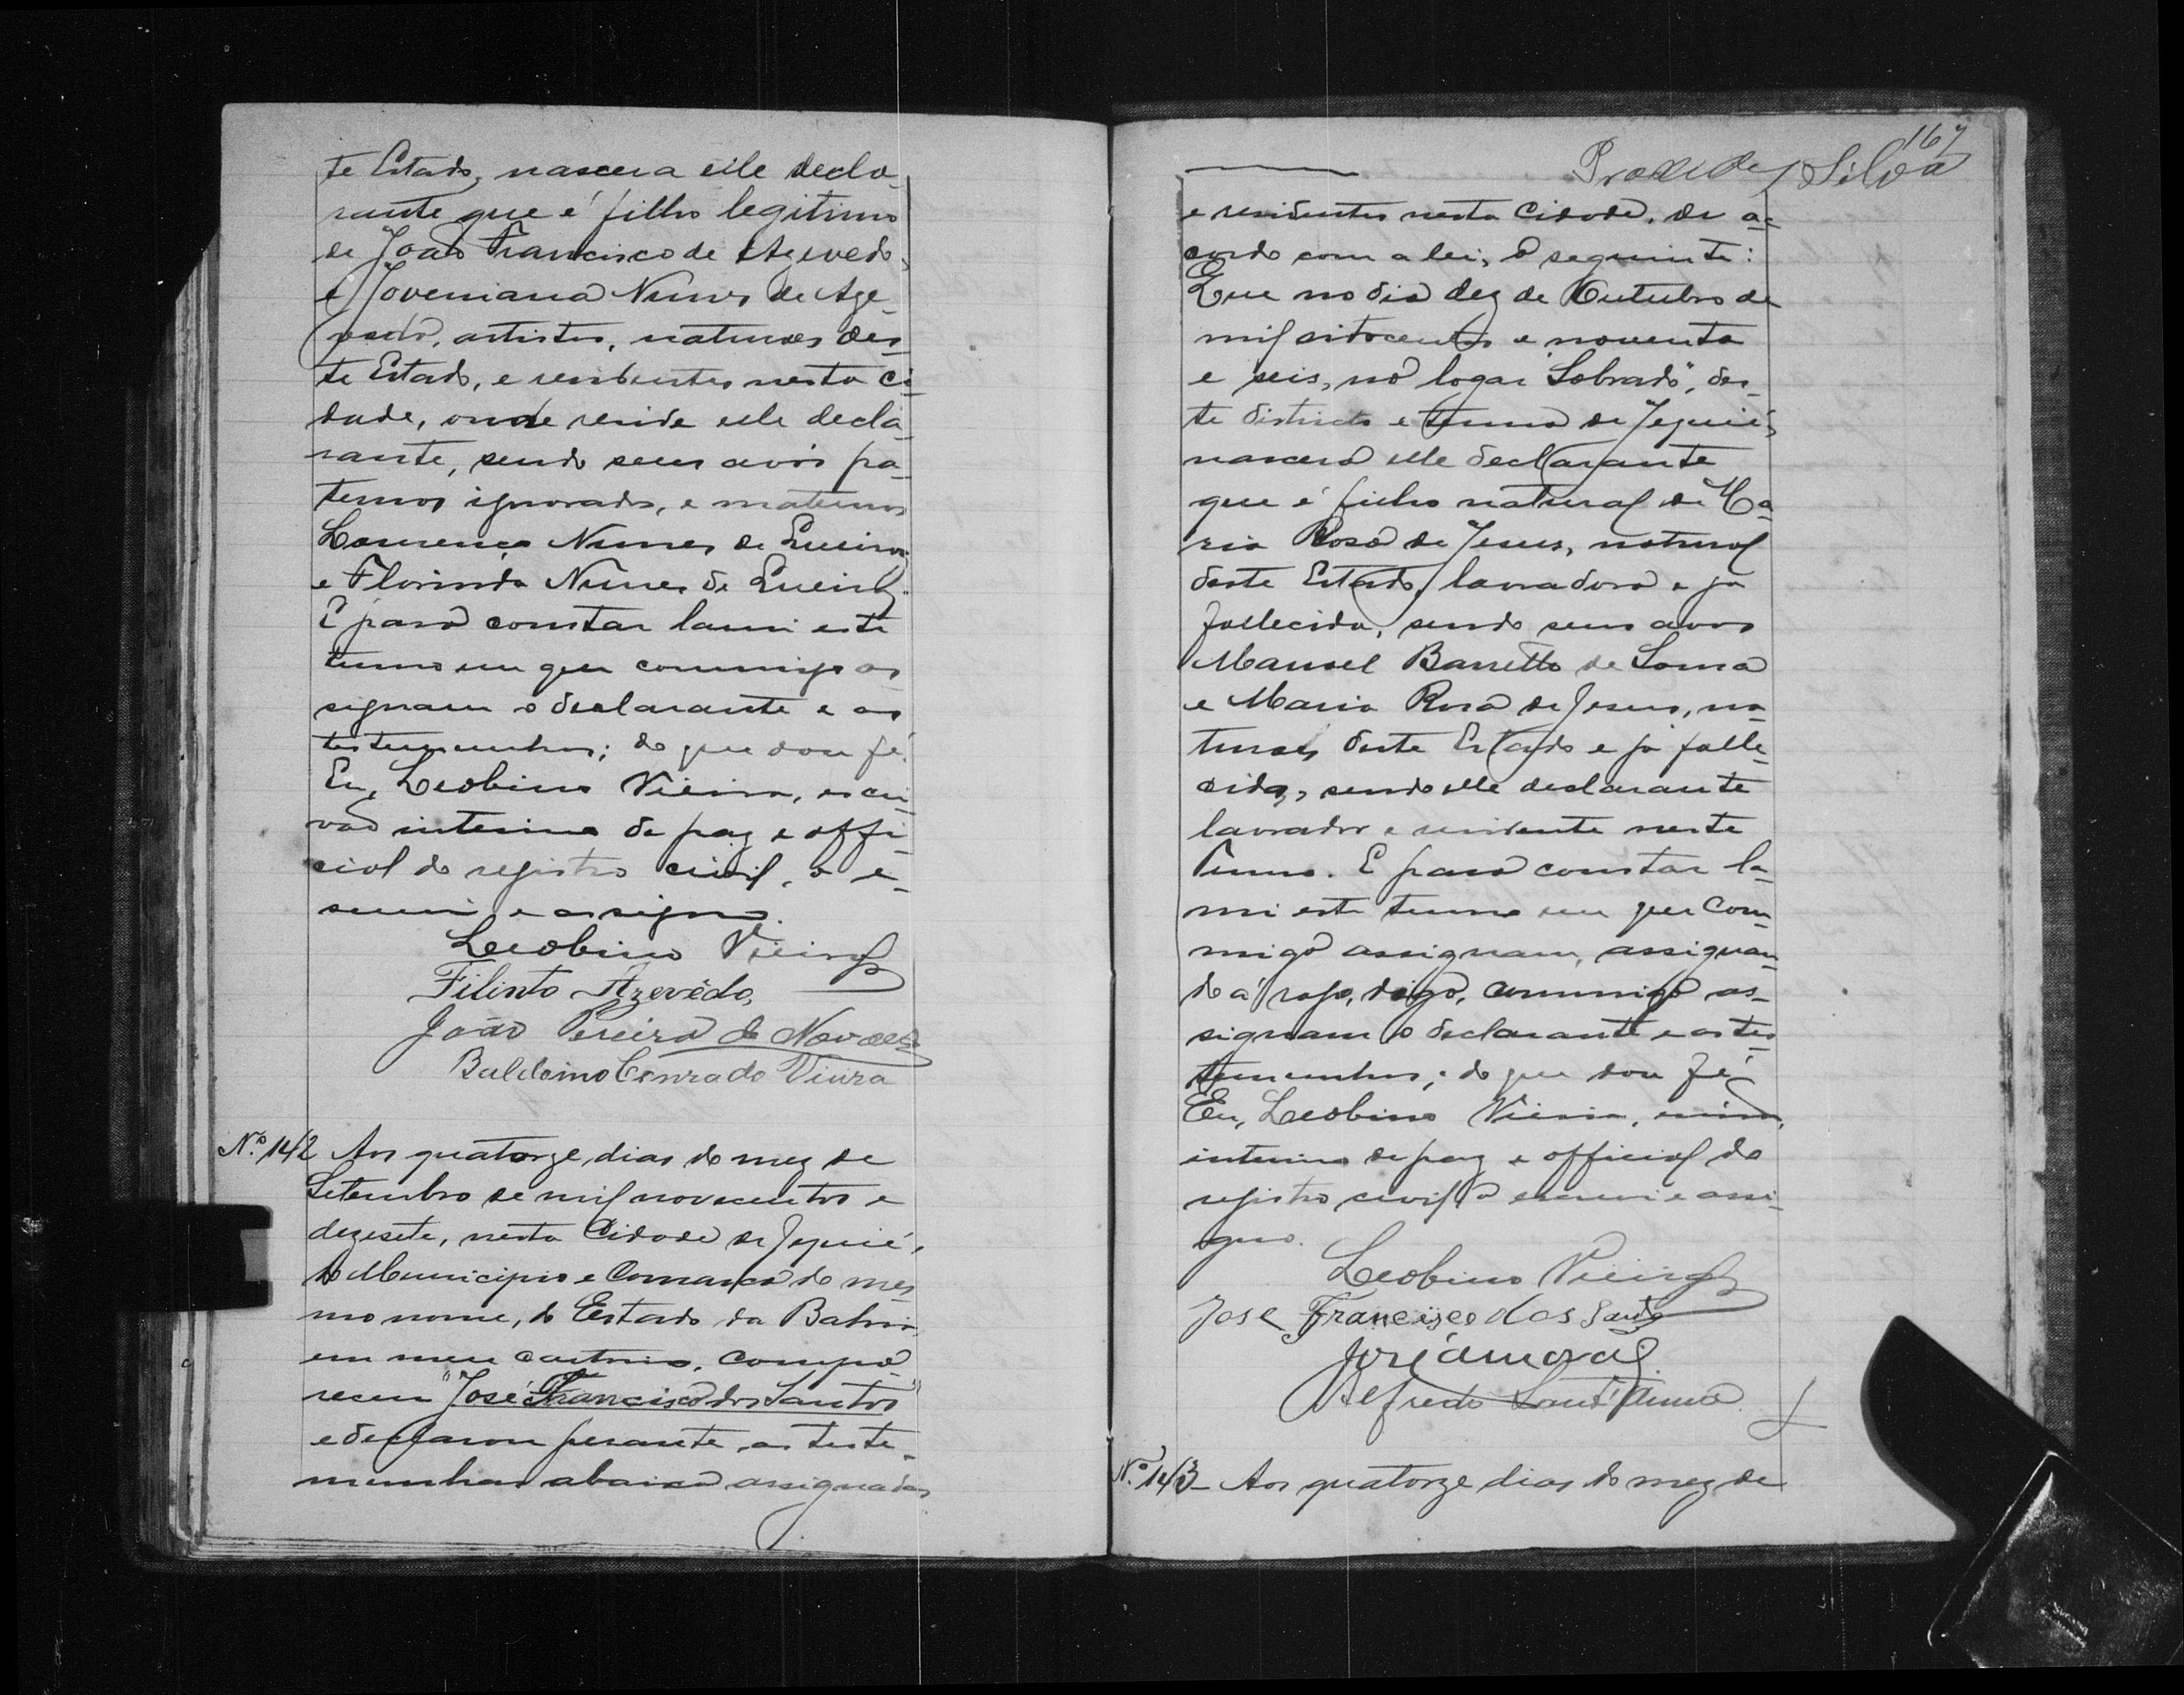 te Estado, nascera elle decla-
rante que é filho legitimo
de João Francisco de Azevedo,
e Joveniana Nunes de Aze-
vedo, artistas, naturaes des-
te Estado, e residentes nesta ci-
dade, onde reside elle decla-
rante, sendo seus avós pa-
ternos ignorados, e maternos
Lourenço Nunes de Queiroz
e Florinda Nunes de Queiroz.
E para constar lavrei este
termo em que commigo as-
signam o declarante e as
testemunhas; do que dou fé.
Eu, Leobino Vieira, escri-
vão interino de paz e offi-
cial do registro civil, o es-
crevi e assigno.
Leobino Vieira
Filinto Azevêdo,
João Pereira de Novaes
Baldoino Conrado Vieira
Nº 142 Aos quatorze dias do mez de
Setembro de mil novecentos e
dezesete, nesta Cidade de Jequié,
do Municipio e Comarca do mes-
mo nome, do Estado da Bahia,
em meu cartorio, compa-
receu "José Francisco dos Santos"
e declarou perante as teste-
munhas abaixo assignadas
167
Silva
e residentes nesta Cidade, de ac-
cordo com a lei, o seguinte:
Que no dia dez de Outubro de
mil oitocentos e noventa
e seis, no logar "Sobrado", des-
te districto e termo de Jequié,
nascera elle declarante
que é filho natural de Ma-
ria Rosa de Jesus, natural
deste Estado, lavradora e já
fallecida, sendo seus avós
Manoel Barretto de Souza
e Maria Rosa de Jesus, na-
turaes deste Estado e já falle-
cidos, sendo elle declarante
lavrador e residente neste
Termo. E para constar la-
vrei este termo em que com-
migo assignam, assignan-
do á rogo, digo, commigo as-
signam o declarante e as tes-
temunhas; do que dou fé.
Eu, Leobino Vieira, escrivão
interino de paz e official do
registro civil o escrevi e assi-
gno.
Leobino Vieira
Jose Francisco dos Santo
Alfredo Sant'Anna.
Nº 143- Aos quatorze dias do mez de